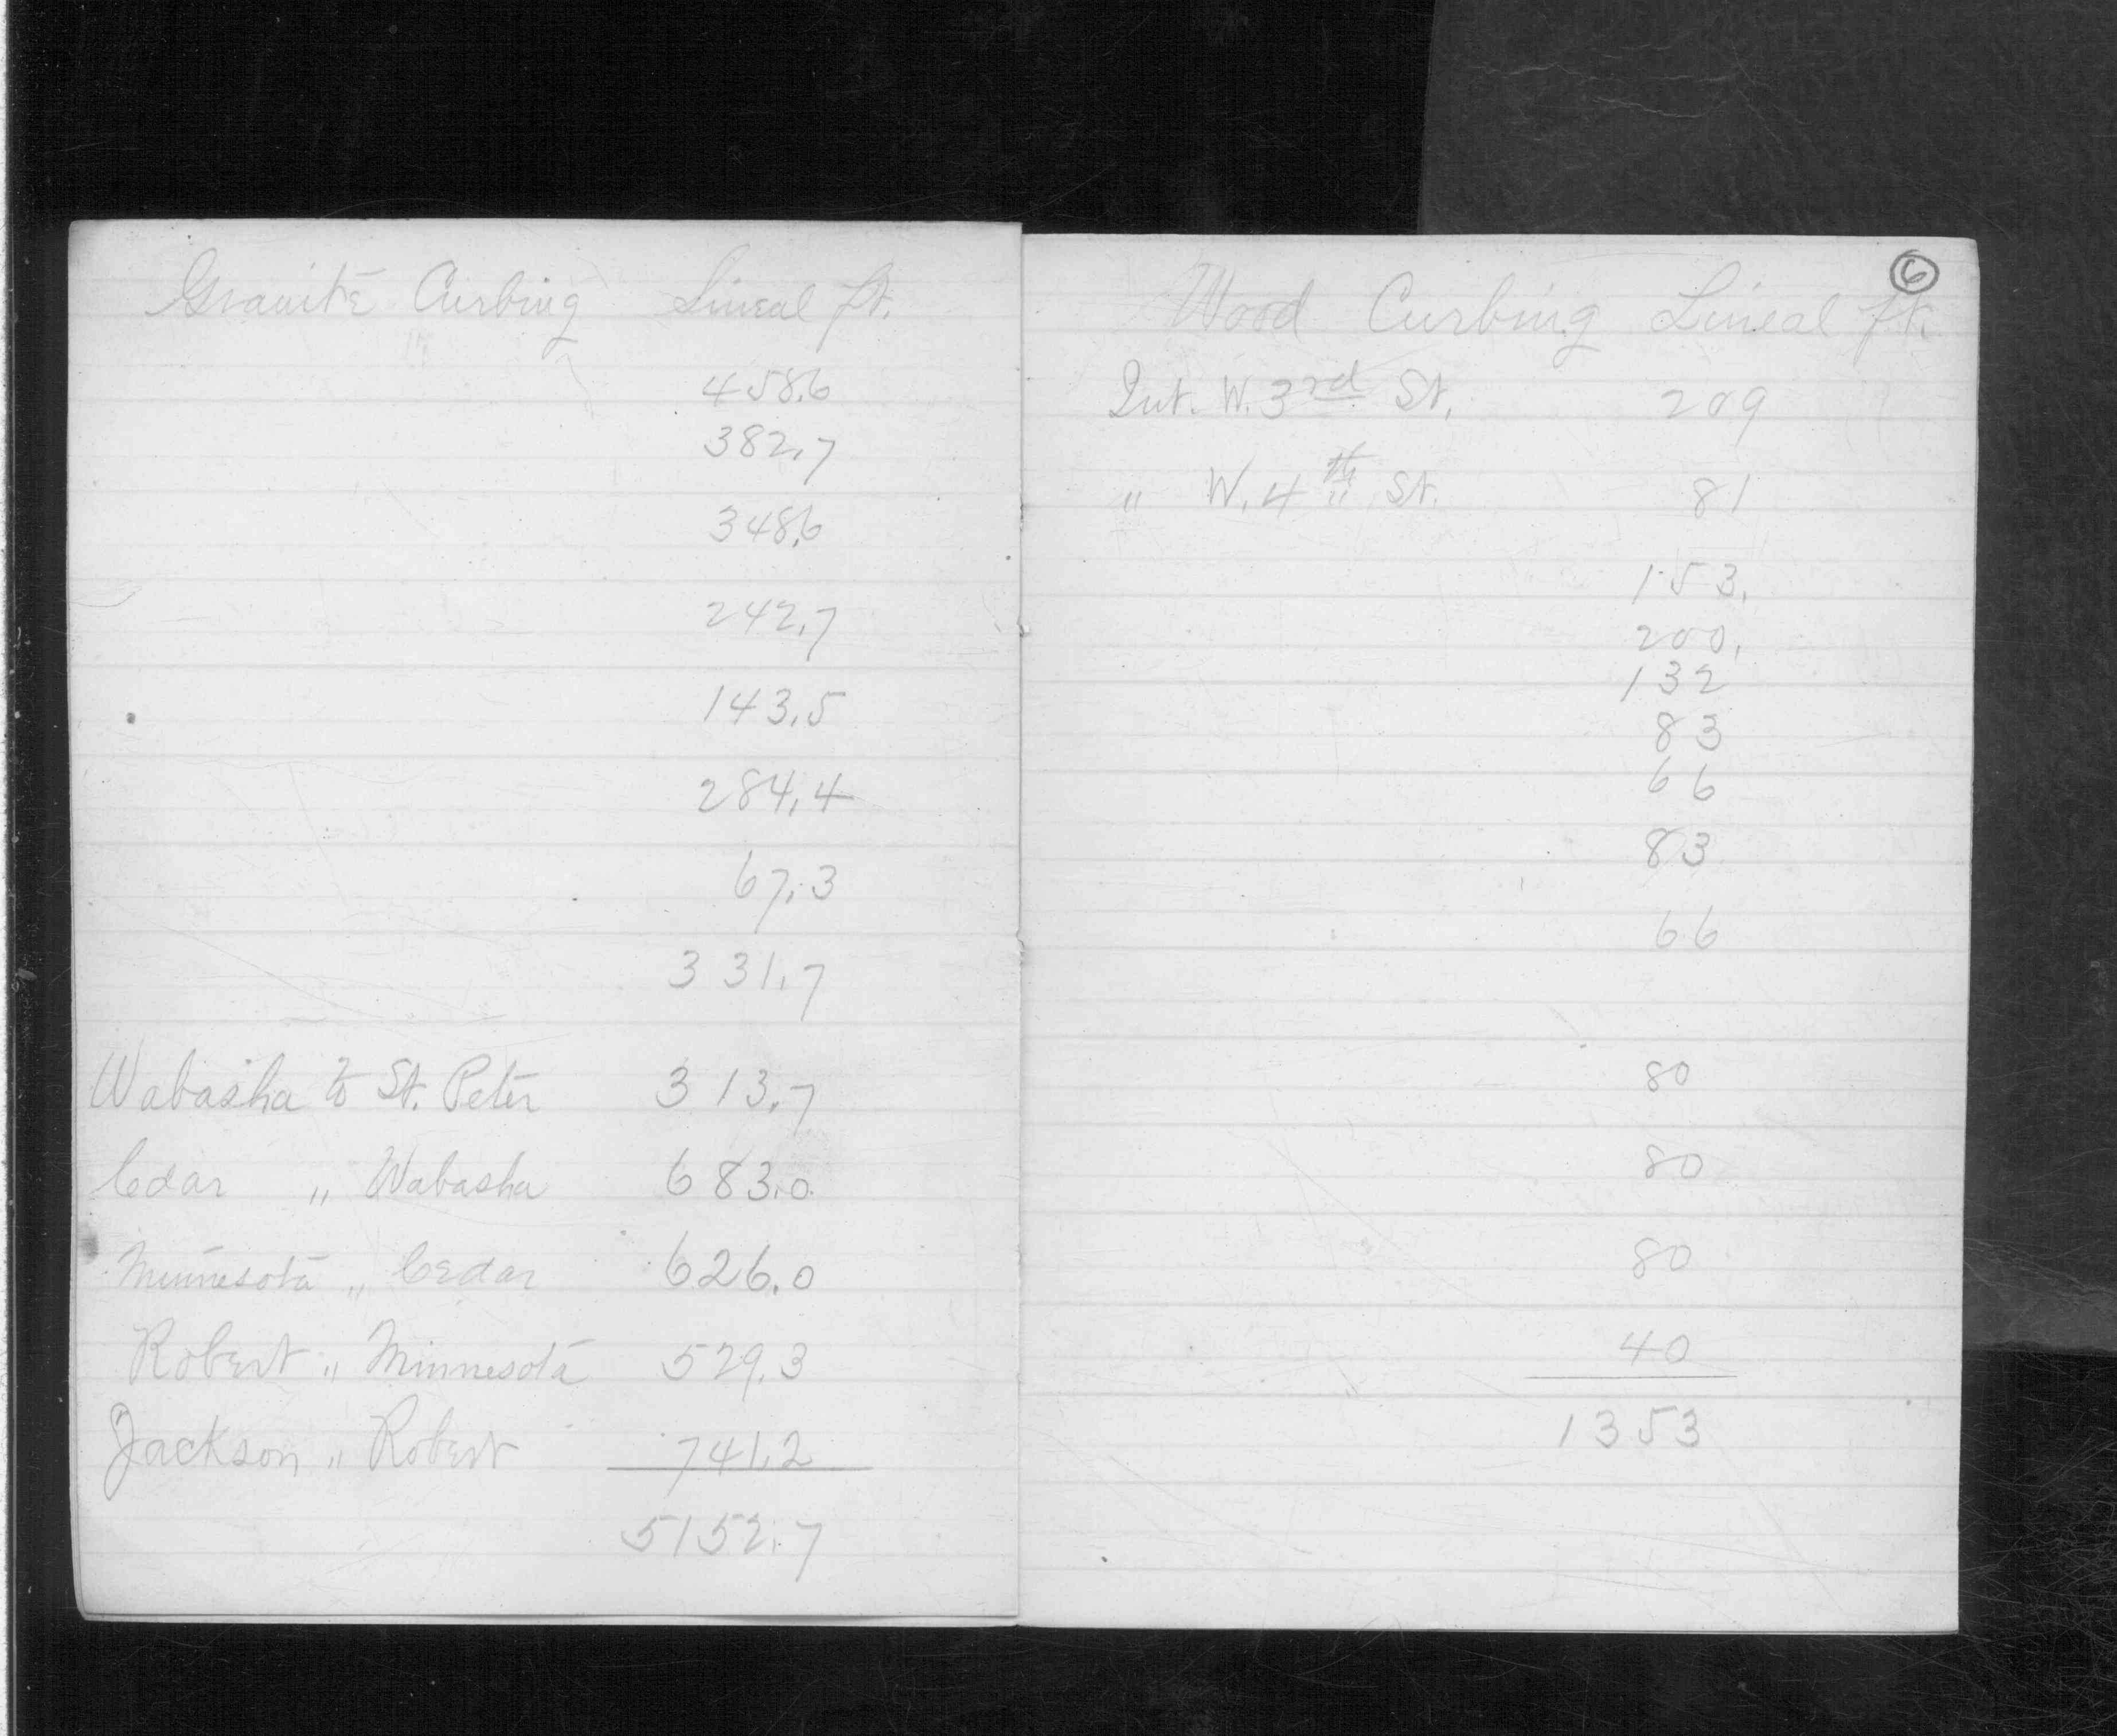 Granite Curbing Lineal ft.
458.6
382.7
348.6
242.7
143.5
284.4
67.3
331.7
Wabasha to St. Peter 313.7
Cedar " Wabasha 683.0
Minnesota " Cedar 626.0
Robert " Minnesota 529.3
Jackson " Robert 741.2
5152.7
6
Wood Curbing Lineal ft.
Int. W. 3rd St. 209
" W. 4th St. 81
153.
200.
132
83
66
83
66
80
80
80
40
1353